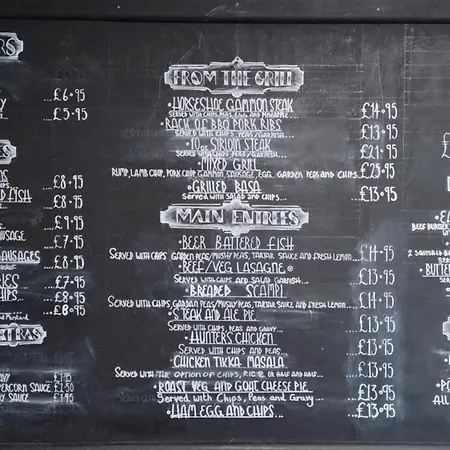 RS
Y
...£6.95
...£5.95
S
£8.95
FISH
...£8.95
...£9.95
SAUSAGE
...£7.95
SAUSAGES
...£8.95
RIES
...£7.95
CHIPS.
...£8.95
...£8.95
XTRAS
£1.95
PERCORN SAUCE £2.50
Y SAUCE £1.95
FROM THE GRILL
•HORSESHOE GAMMON STEAK
SERVED WITH CHIPS, PEAS, EGG AND PINEAPPLE
...£14.95
•RACK OF BBQ PORK RIBS
SERVED WITH CHIPS, PEAS/GARNISH
...£13.95
•10oz SIRLOIN STEAK
...£21.95
•MIXED GRILL
RUMP, LAMB CHOP, PORK CHOP, GAMMON, SAUSAGE, EGG, GARDEN PEAS AND CHIPS.
...£25.95
•GRILLED BASA
SERVED WITH SALAD AND CHIPS
...£13.95
MAIN ENTREES
•BEER BATTERED FISH
SERVED WITH CHIPS GARDEN PEAS/MUSHY PEAS, TARTAR SAUCE AND FRESH LEMON...£14.95
•BEEF/VEG LASAGNE
SERVED WITH CHIPS AND SALAD GARNISH
...£13.95
•BREADED SCAMPI
SERVED WITH CHIPS, GARDEN PEAS/MUSHY PEAS, TARTAR SAUCE AND FRESH LEMON...£14.95
•STEAK AND ALE PIE
SERVED WITH CHIPS, PEAS AND GRAVY
...£13.95
•HUNTERS CHICKEN
SERVED WITH CHIPS AND PEAS
...£13.95
CHICKEN TIKKA MASALA
SERVED WITH THE OPTION OF CHIPS, RICE OR HALF AND HALF
...£13.95
•ROAST VEG AND GOAT CHEESE PIE
SERVED WITH CHIPS, PEAS AND GRAVY
...£13.95
•HAM EGG AND CHIPS...
£13.95
BEEF BURGER
BUTTER
ALL